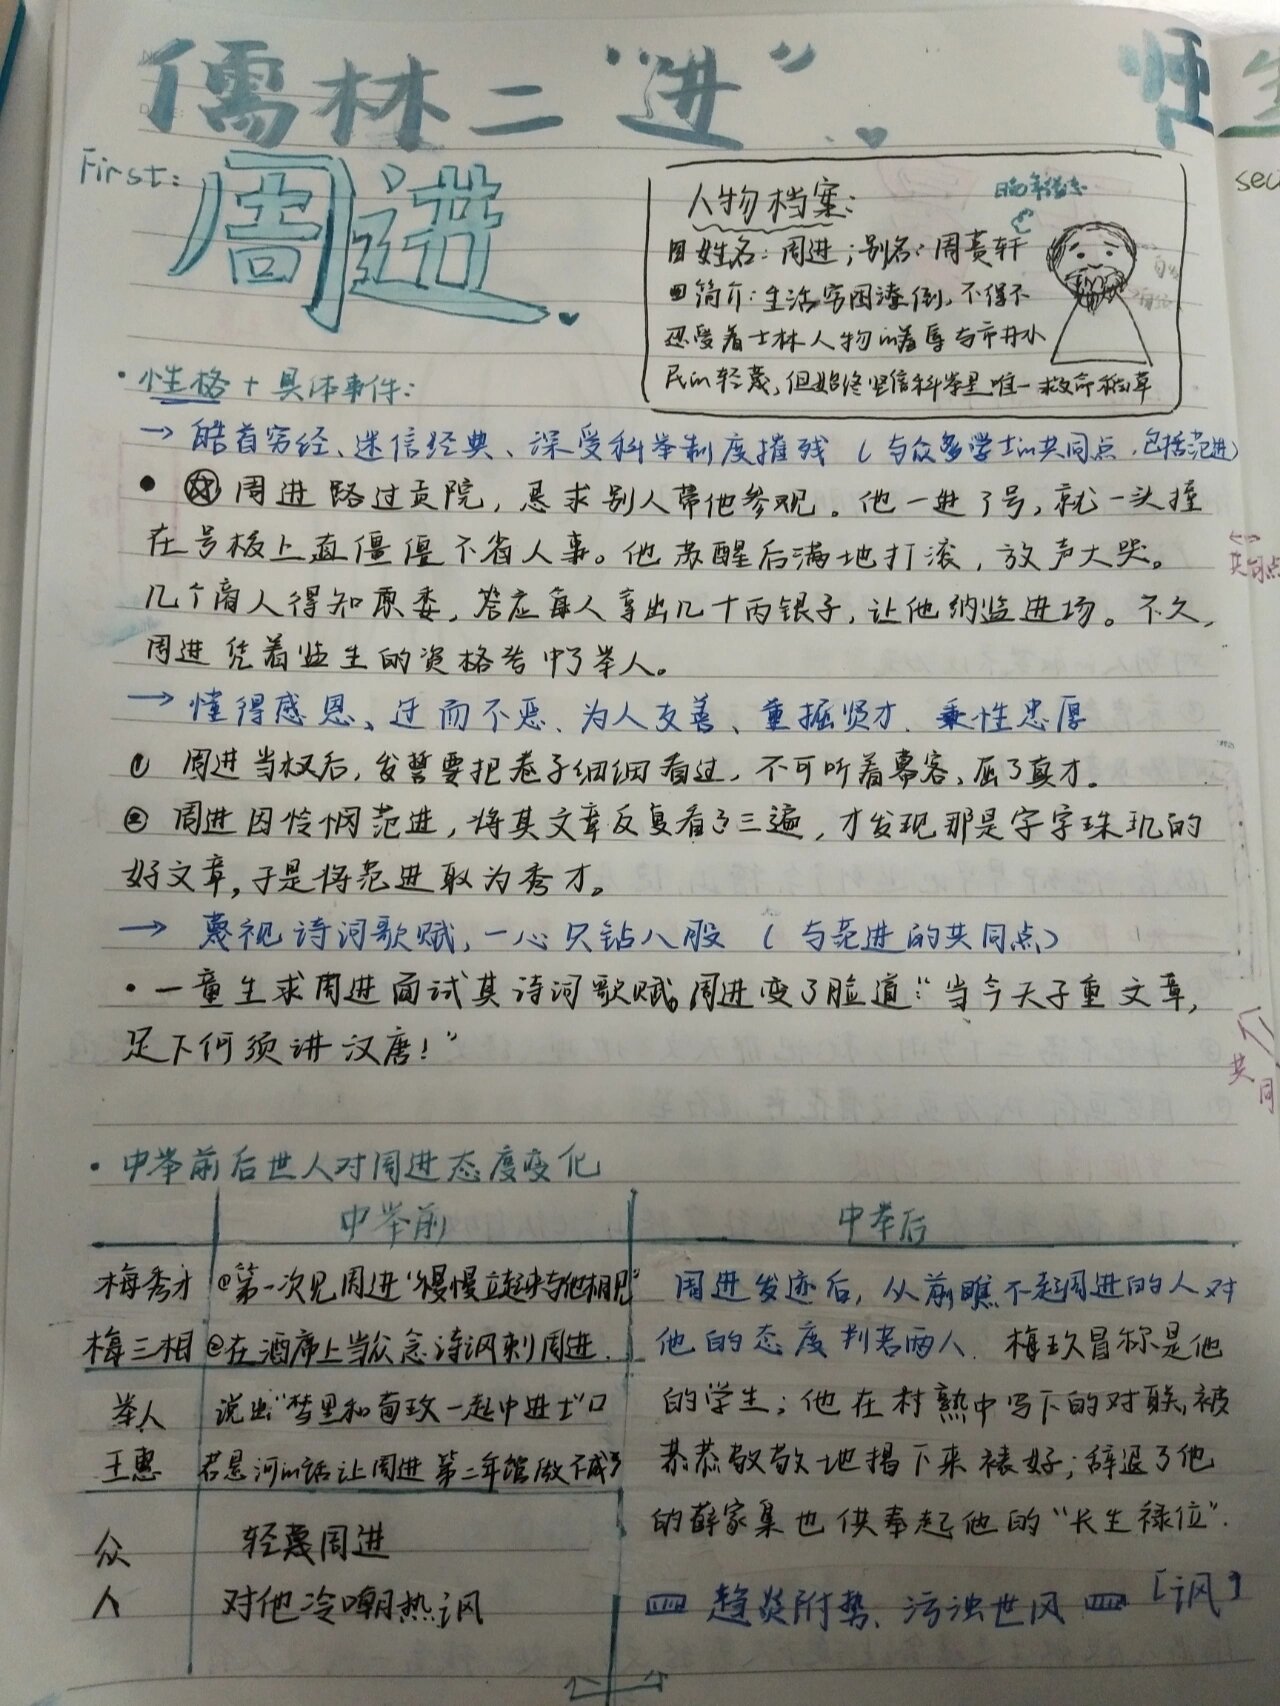 儒林二“进”
师生
First:
周进
人物档案:
姓名:周进;别名:周蒉轩
简介:生活穷困潦倒,不得不
忍受着士林人物的羞辱与市井小
民的轻蔑,但始终坚信科举是唯一救命稻草
·性格+具体事件:
→ 皓首穷经、迷信经典、深受科举制度摧残(与众多学士的共同点,包括范进)
周进路过贡院,恳求别人带他参观。他一进了号,就一头撞
在号板上直僵僵不省人事。他苏醒后满地打滚,放声大哭。
共同点
几个商人得知原委,答应每人拿出几十两银子,让他纳监进场。不久,
周进凭着监生的资格考中了举人。
→ 懂得感恩、迂而不恶、为人友善、重掘贤才、秉性忠厚
① 周进当权后,发誓要把卷子细细看过,不可听着幕客,屈了真才。
② 周进因怜悯范进,将其文章反复看了三遍,才发现那是字字珠玑的
好文章,于是将范进取为秀才。
→ 蔑视诗词歌赋,一心只钻八股(与范进的共同点)
·一童生求周进面试其诗词歌赋,周进变了脸道:“当今天子重文章,
足下何须讲汉唐!”
共同
·中举前后世人对周进态度变化
中举前 中举后
梅秀才 ①第一次见周进“慢慢立起来与他相见” 周进发迹后,从前瞧不起周进的人对
梅三相 ②在酒席上当众念诗讽刺周进. 他的态度判若两人. 梅玖冒称是他
举人 说出“梦里和荀玫一起中进士”口 的学生;他在村熟中写下的对联,被
王惠 若悬河的话让周进第二年馆做不成了 恭恭敬敬地揭下来裱好;辞退了他
的薛家集也供奉起他的“长生禄位”.
众人 轻蔑周进
对他冷嘲热讽
趋炎附势、污浊世风 「讽」